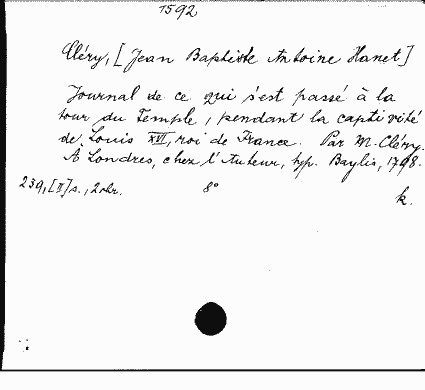 1592
Cléry, [Jean Baptiste Antoine Hanet]
Journal de ce qui s'est passé à la
tour du Temple, pendant la captivité
de Louis XVI, roi de France. Par M. Cléry.
A Londres, chez l'Auteur, typ. Baylis, 1798.
239, [II] s., 2 obr. 8°
k.